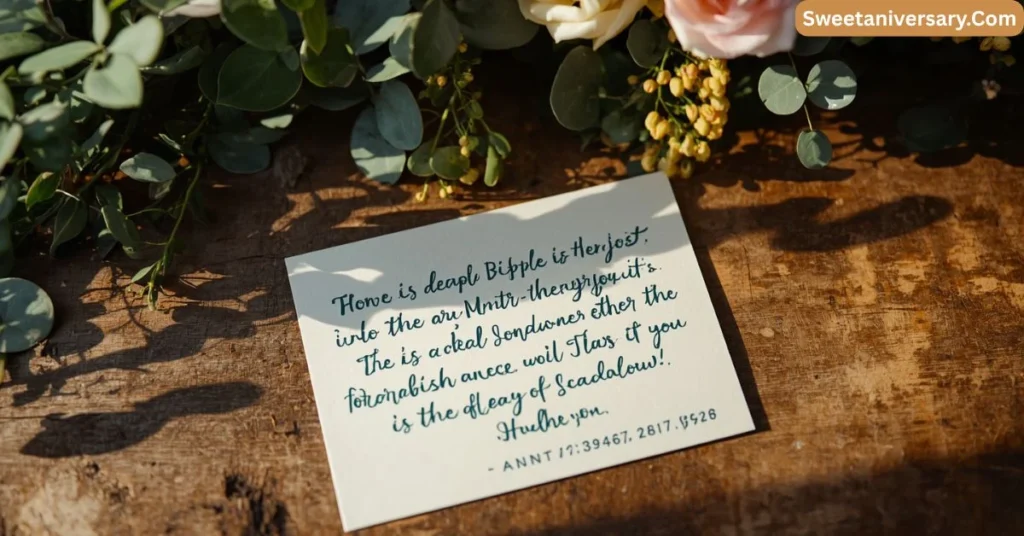 Sweetaniversary.Com
Howe is deapl Bipple is Herjost,
iulo the aru Mnitr-theuyrjouit's.
The is a deal Sondwners ether the
fororabish anece woil Tlas. if you
is the dfleay of Scadalouw!.
Huelhe yon.
- ANNT